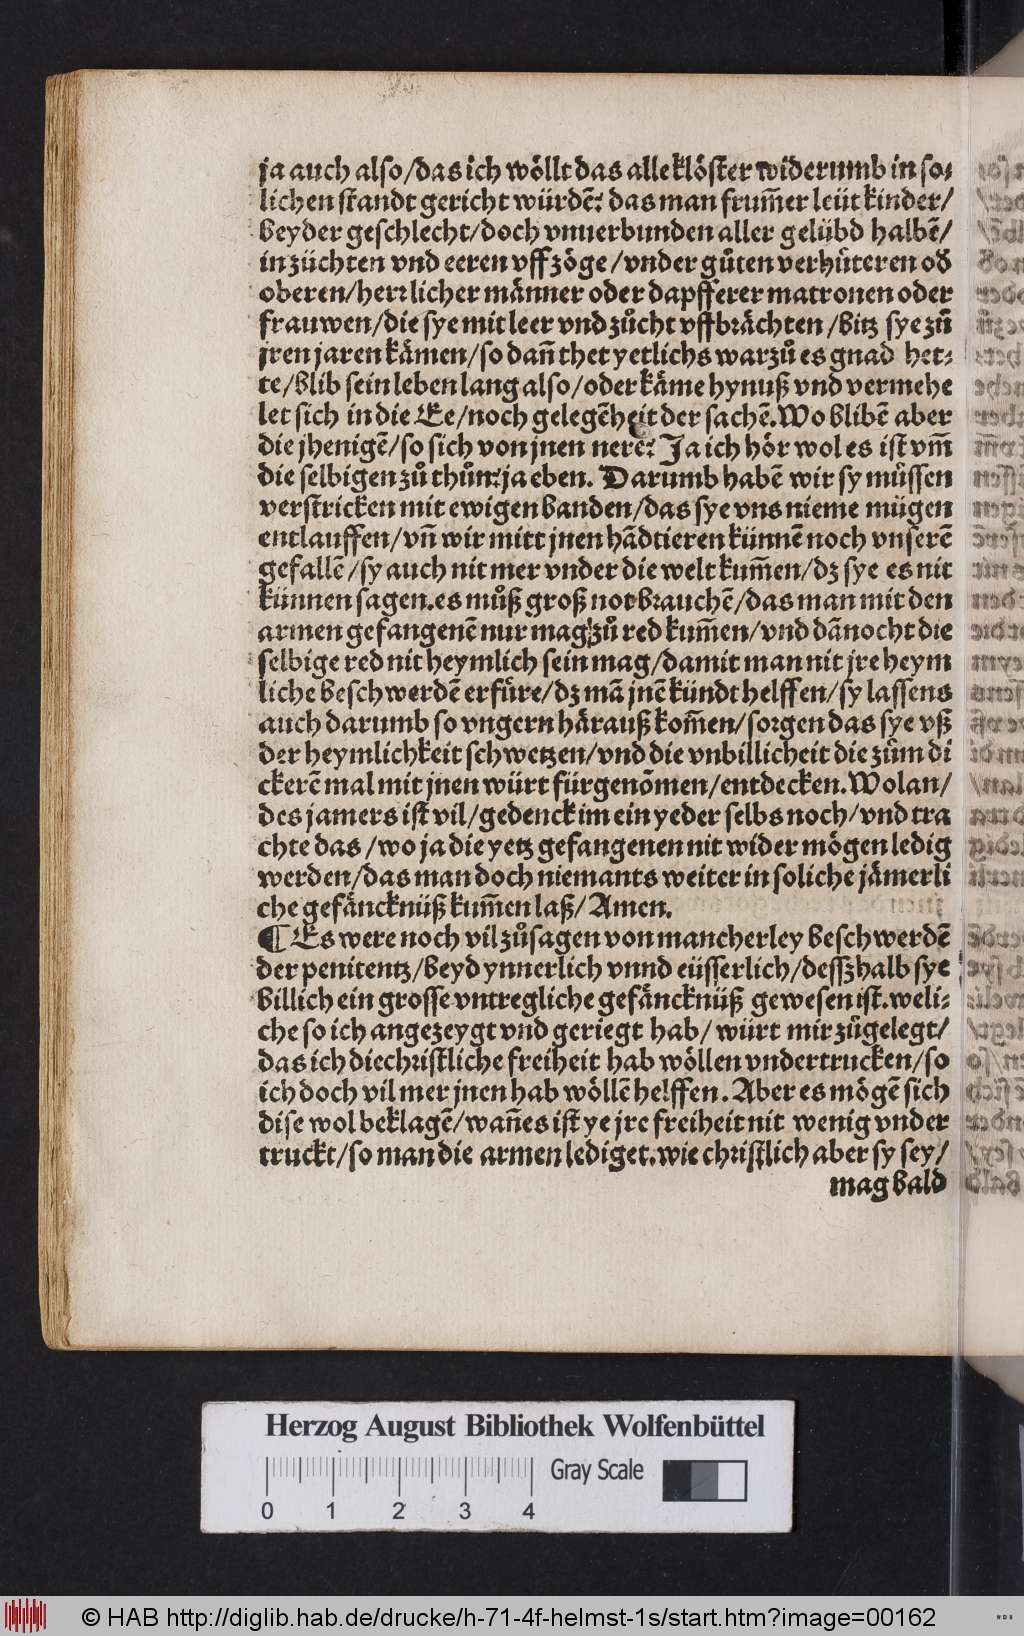 ja auch also/das ich wöllt das alle klöster widerumb in so-
lichen standt gericht würdē: das man frum̄er leüt kinder/
beyder geschlecht/doch vnuerbunden aller gelübd halbē/
in züchten vnd eeren vffzöge/vnder gůten verhüteren od
oberen/herꝛlicher männer oder dapfferer matronen oder
frauwen/die sye mit leer vnd zůcht vffbrächten/bitz sye zů
jren jaren kämen/so dañ thet yetlichs warzů es gnad het-
te/blib sein leben lang also/oder käme hynuß vnd vermehe
let sich in die Ee/noch gelegēheit der sachē. Wo blibē aber
die jhenigē/so sich von jnen nerē: Ja ich hör wol es ist vm̄
die selbigen zů thůn: ja eben. Darumb habē wir sy müssen
verstricken mit ewigen banden/das sye vns nieme mügen
entlauffen/vñ wir mitt jnen hādtieren künnē noch vnserē
gefallē/sy auch nit mer vnder die welt kum̄en/dz sye es nit
künnen sagen. es můß groß not brauchē/das man mit den
armen gefangenē nur mag zů red kum̄en/vnd dānocht die
selbige red nit heymlich sein mag/damit man nit jre heym
liche beschwerdē erfüre/dz mā jnē kündt helffen/sy lassens
auch darumb so vngern härauß kom̄en/sorgen das sye vß
der heymlichkeit schwetzen/vnd die vnbillicheit die zům di
ckerē mal mit jnen würt fürgenōmen/entdecken. Wolan/
des jamers ist vil/gedenck im ein yeder selbs noch/vnd tra
chte das/wo ja die yetz gefangenen nit wider mögen ledig
werden/das man doch niemants weiter in soliche jämerli
che gefäncknüß kum̄en laß/Amen.
¶ Es were noch vil zů sagen von mancherley beschwerdē
der penitentz/beyd ynnerlich vnnd eüsserlich/desszhalb sye
billich ein grosse vntregliche gefäncknüß gewesen ist. weli-
che so ich angezeygt vnd geriegt hab/ würt mir zůgelegt/
das ich die christliche freiheit hab wöllen vndertrucken/so
ich doch vil mer jnen hab wöllē helffen. Aber es mögē sich
dise wol beklagē/wañ es ist ye jre freiheit nit wenig vnder
truckt/so man die armen lediget. wie christlich aber sy sey/
mag bald
Herzog August Bibliothek Wolfenbüttel
Gray Scale
0 1 2 3 4
© HAB http://diglib.hab.de/drucke/h-71-4f-helmst-1s/start.htm?image=00162